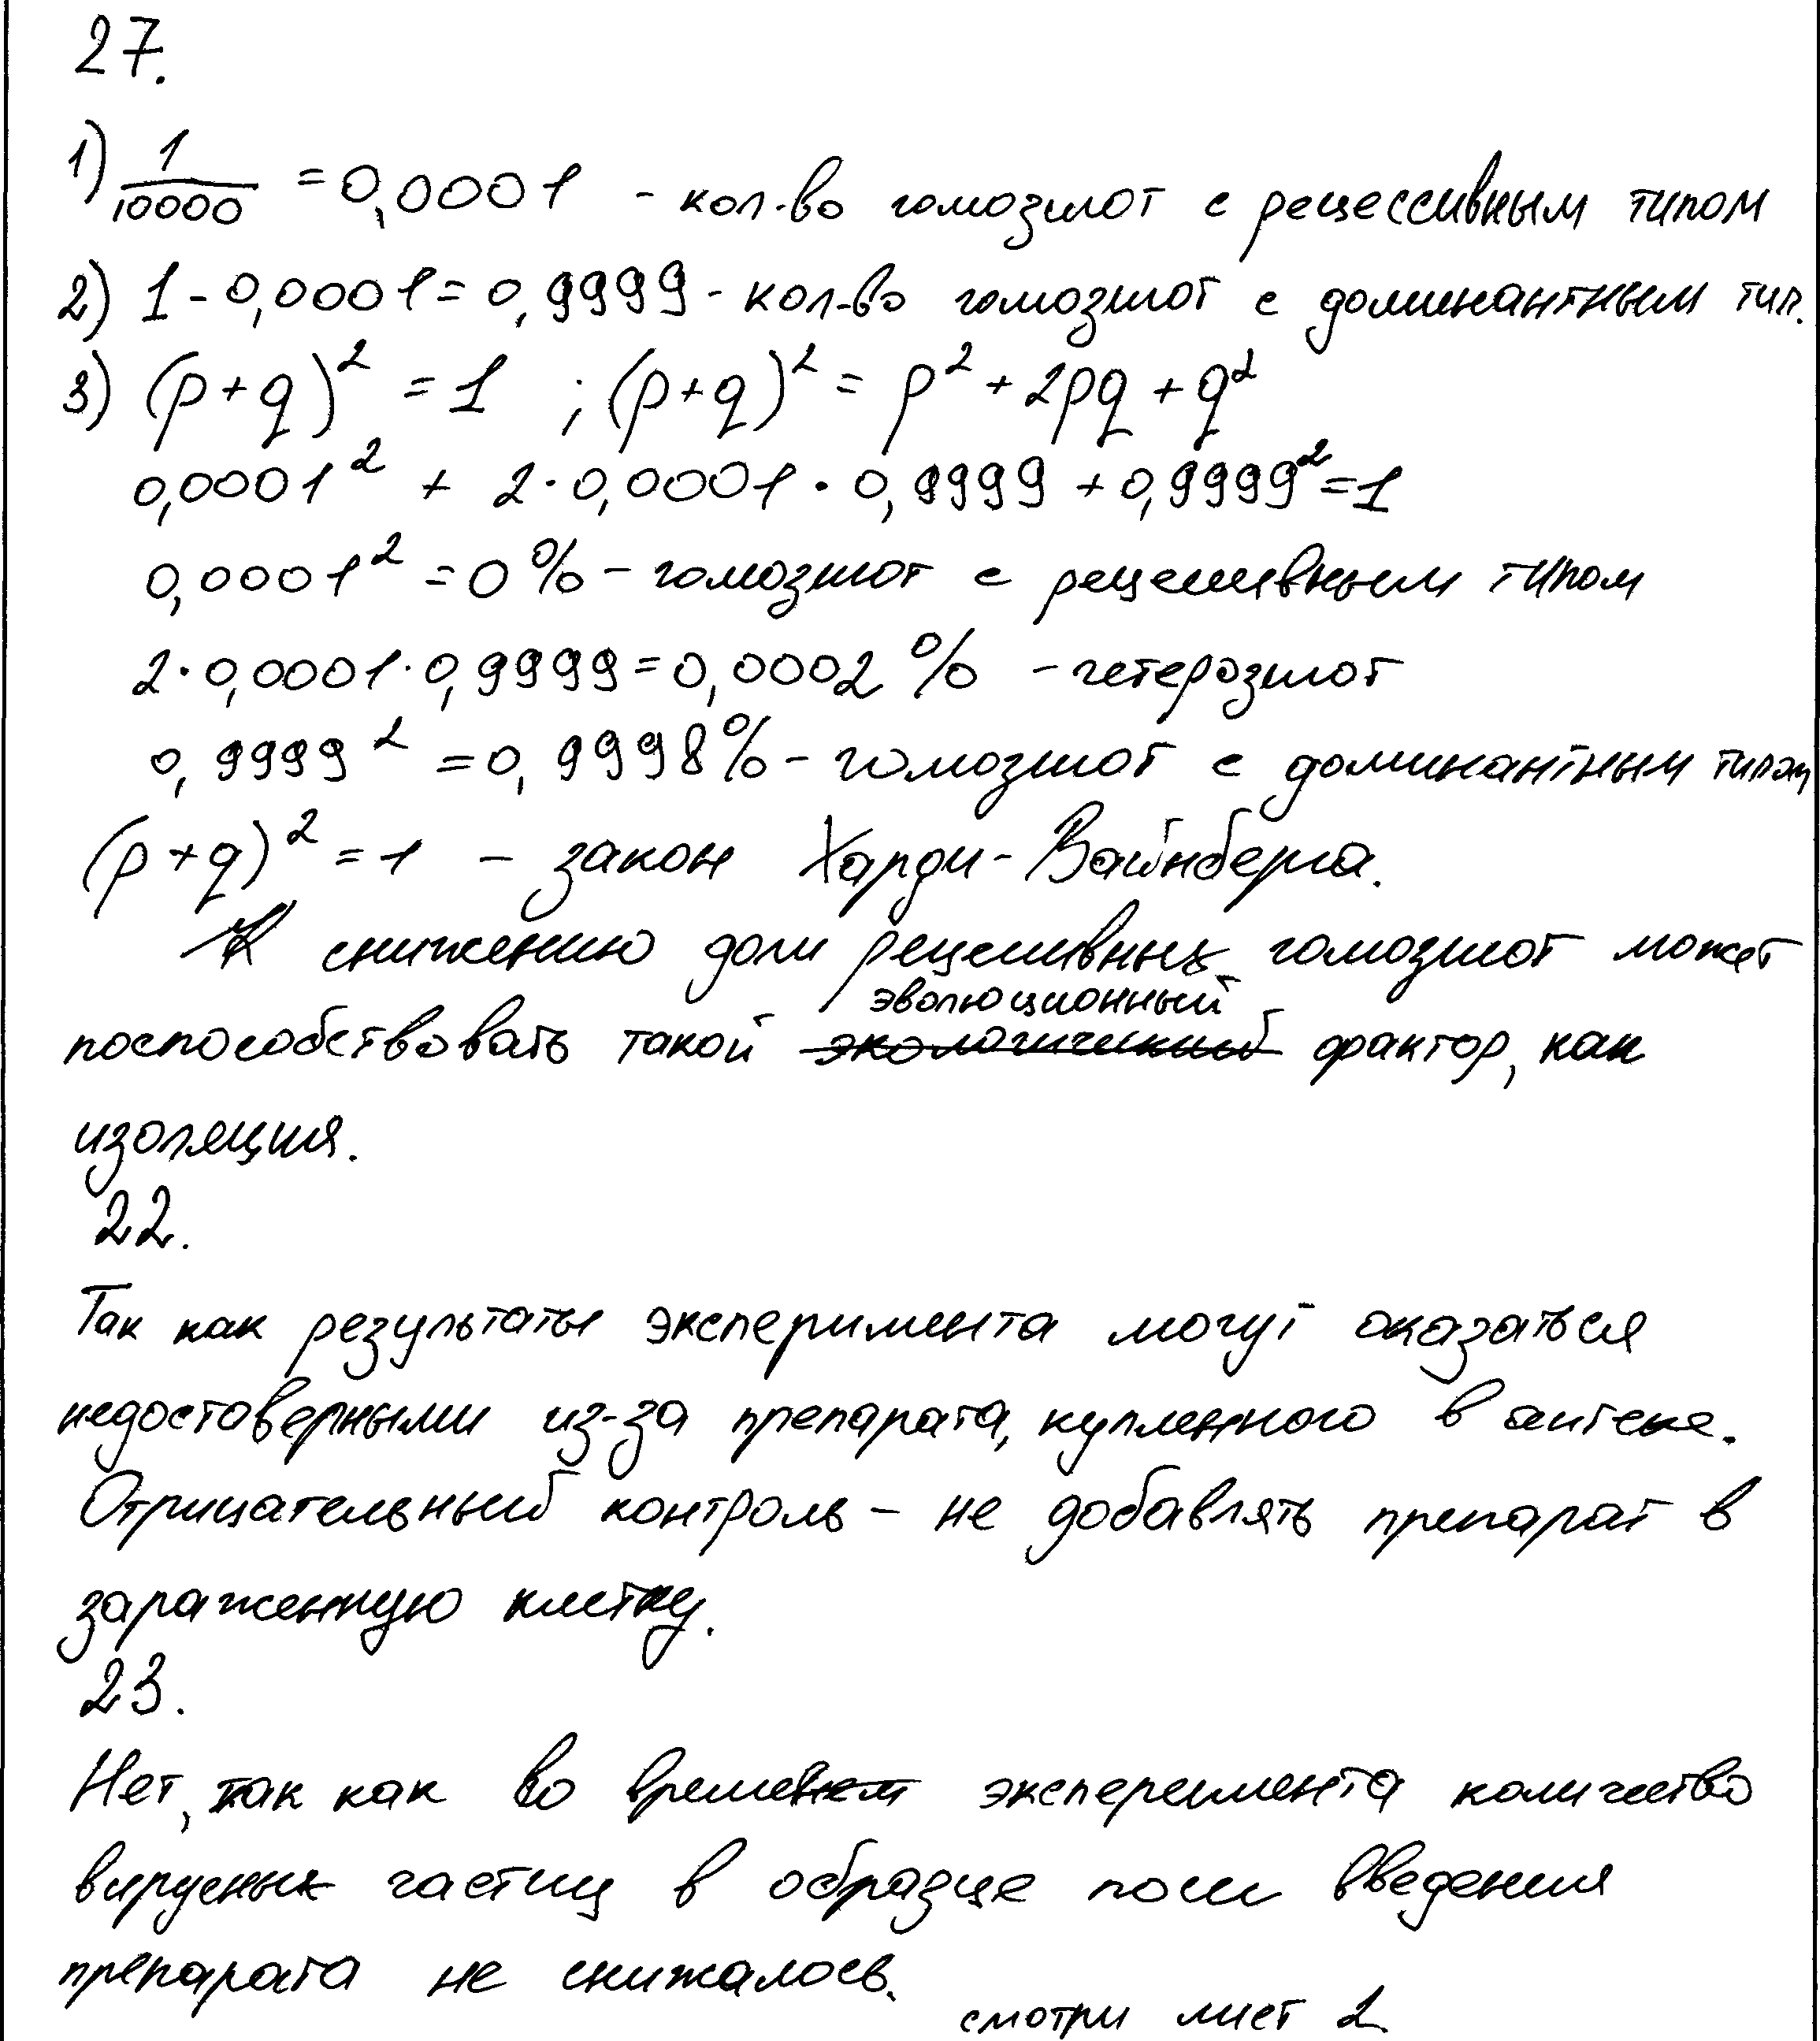 27.
1) 1/10000 = 0,0001 - кол-во гомозигот с рецессивным типом
2) 1 - 0,0001 = 0,9999 - кол-во гомозигот с доминантным тип.
3) (p+q)² = 1 ; (p+q)² = p² + 2pq + q²
0,0001² + 2·0,0001·0,9999 + 0,9999² = 1
0,0001² = 0% - гомозигот с рецессивным типом
2·0,0001·0,9999 = 0,0002% - гетерозигот
0,9999² = 0,9998% - гомозигот с доминантным типом
(p+q)² = 1 - закон Харди-Вайнберга.
К снижению доли рецессивных гомозигот может
эволюционный
поспособствовать такой экологический фактор, как
изоляция.
22.
Так как результаты эксперимента могут оказаться
недостоверными из-за препарата, купленного в аптеке.
Отрицательный контроль - не добавлять препарат в
зараженную клетку.
23.
Нет, так как во время эксперимента количество
вирусных частиц в образце после введения
препарата не снижалось.
смотри лист 2